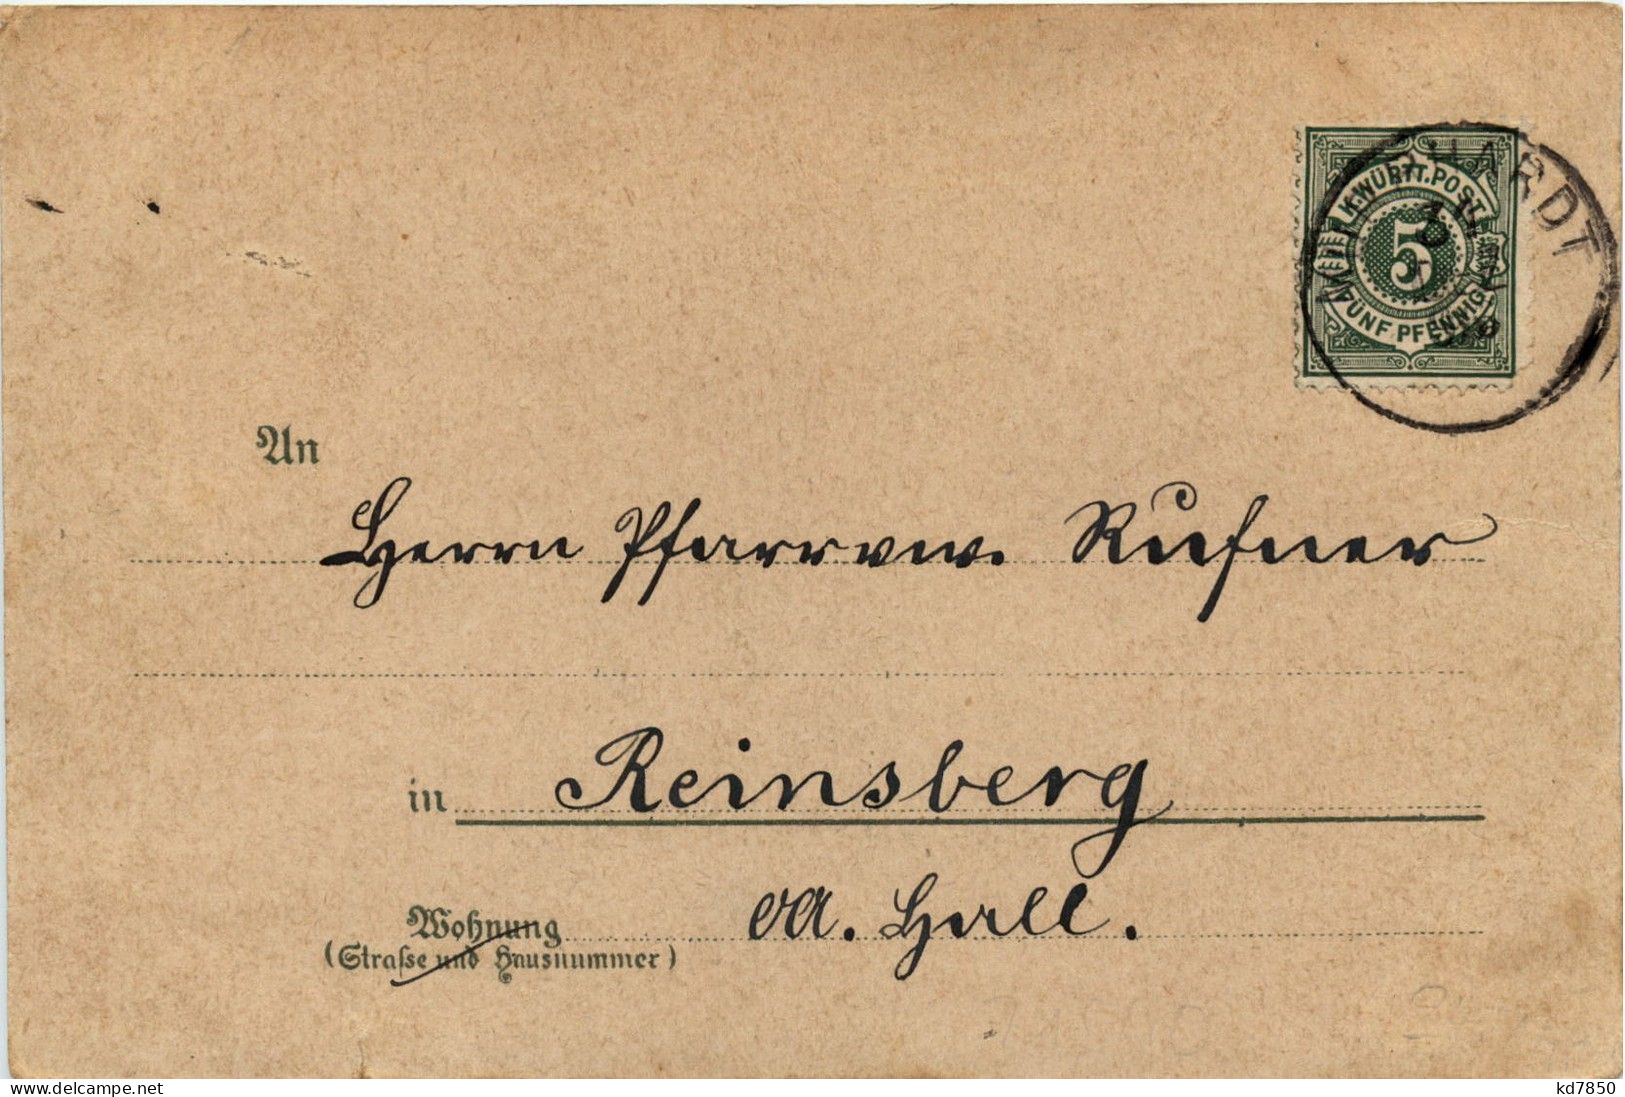 K. WÜRTT. POST
5
FÜNF PFENNIG
An
Herrn Pfarrverw. Rufner
in Reinsberg
Wohnung OA. Hall.
(Straße und Hausnummer)
www.delcampe.net
kd7850